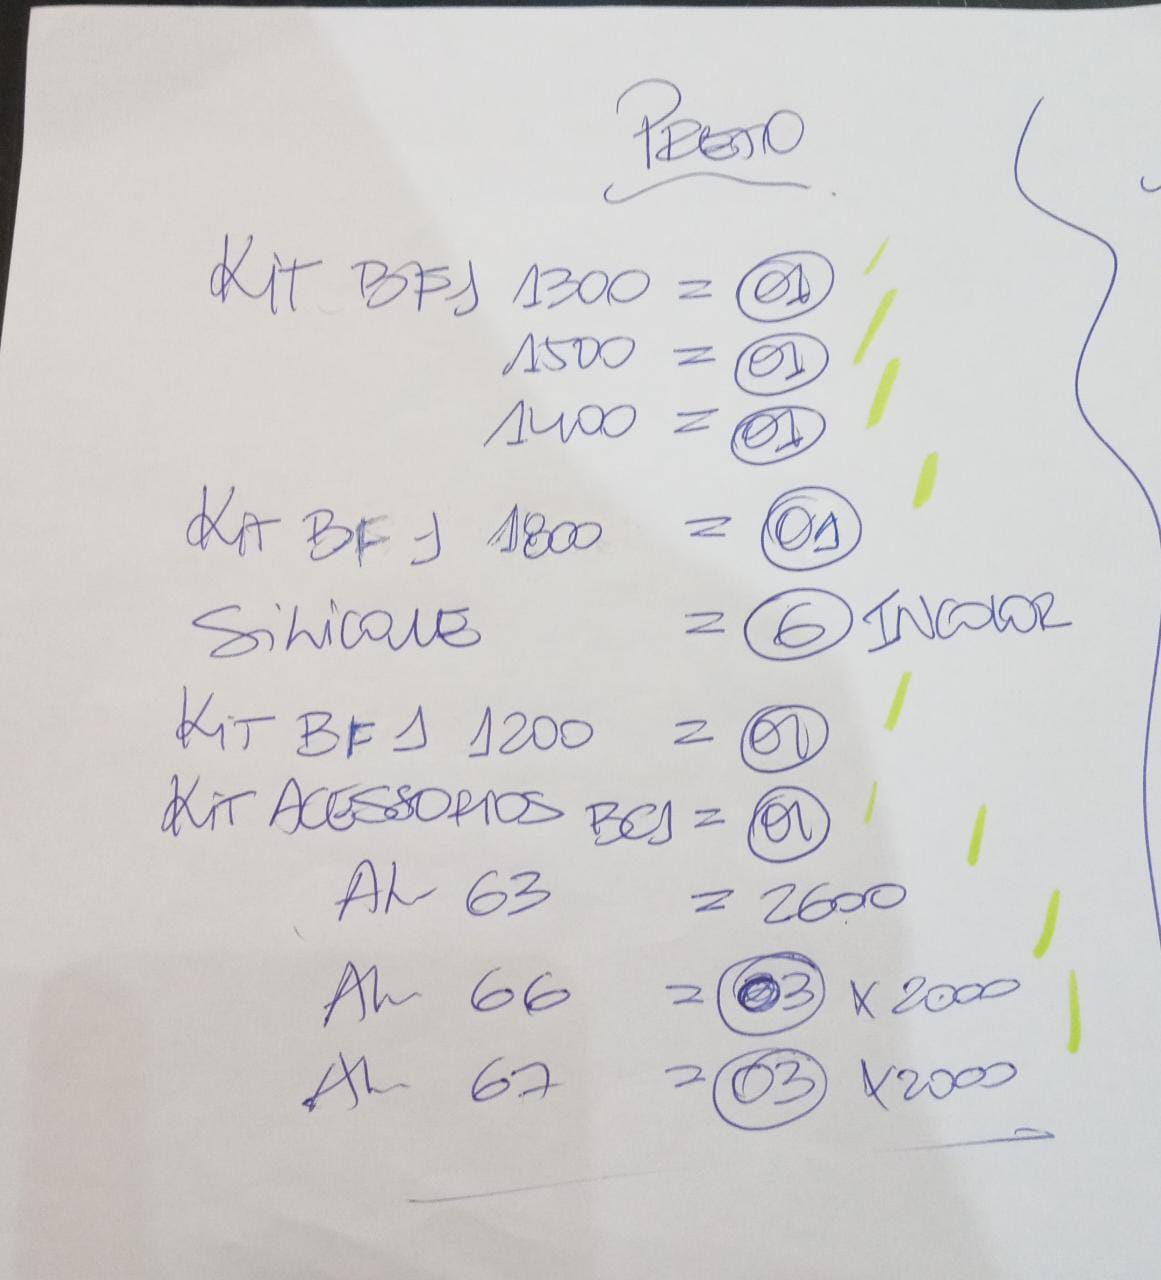 PRETO
KIT BF1 1300 = 01
1500 = 01
1400 = 01
KIT BF1 1800 = 01
SILICONE = 6 INCOLOR
KIT BF1 1200 = 01
KIT ACESSORIOS BC1 = 01
AL 63 = 2600
AL 66 = 03 X 2000
AL 67 = 03 X 2000